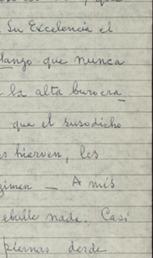 Su Excelencia el
que nunca
la alta burocra
que el susodicho
hierven, les
gimen — A mis
ebulle nade. Casi
piernas desde